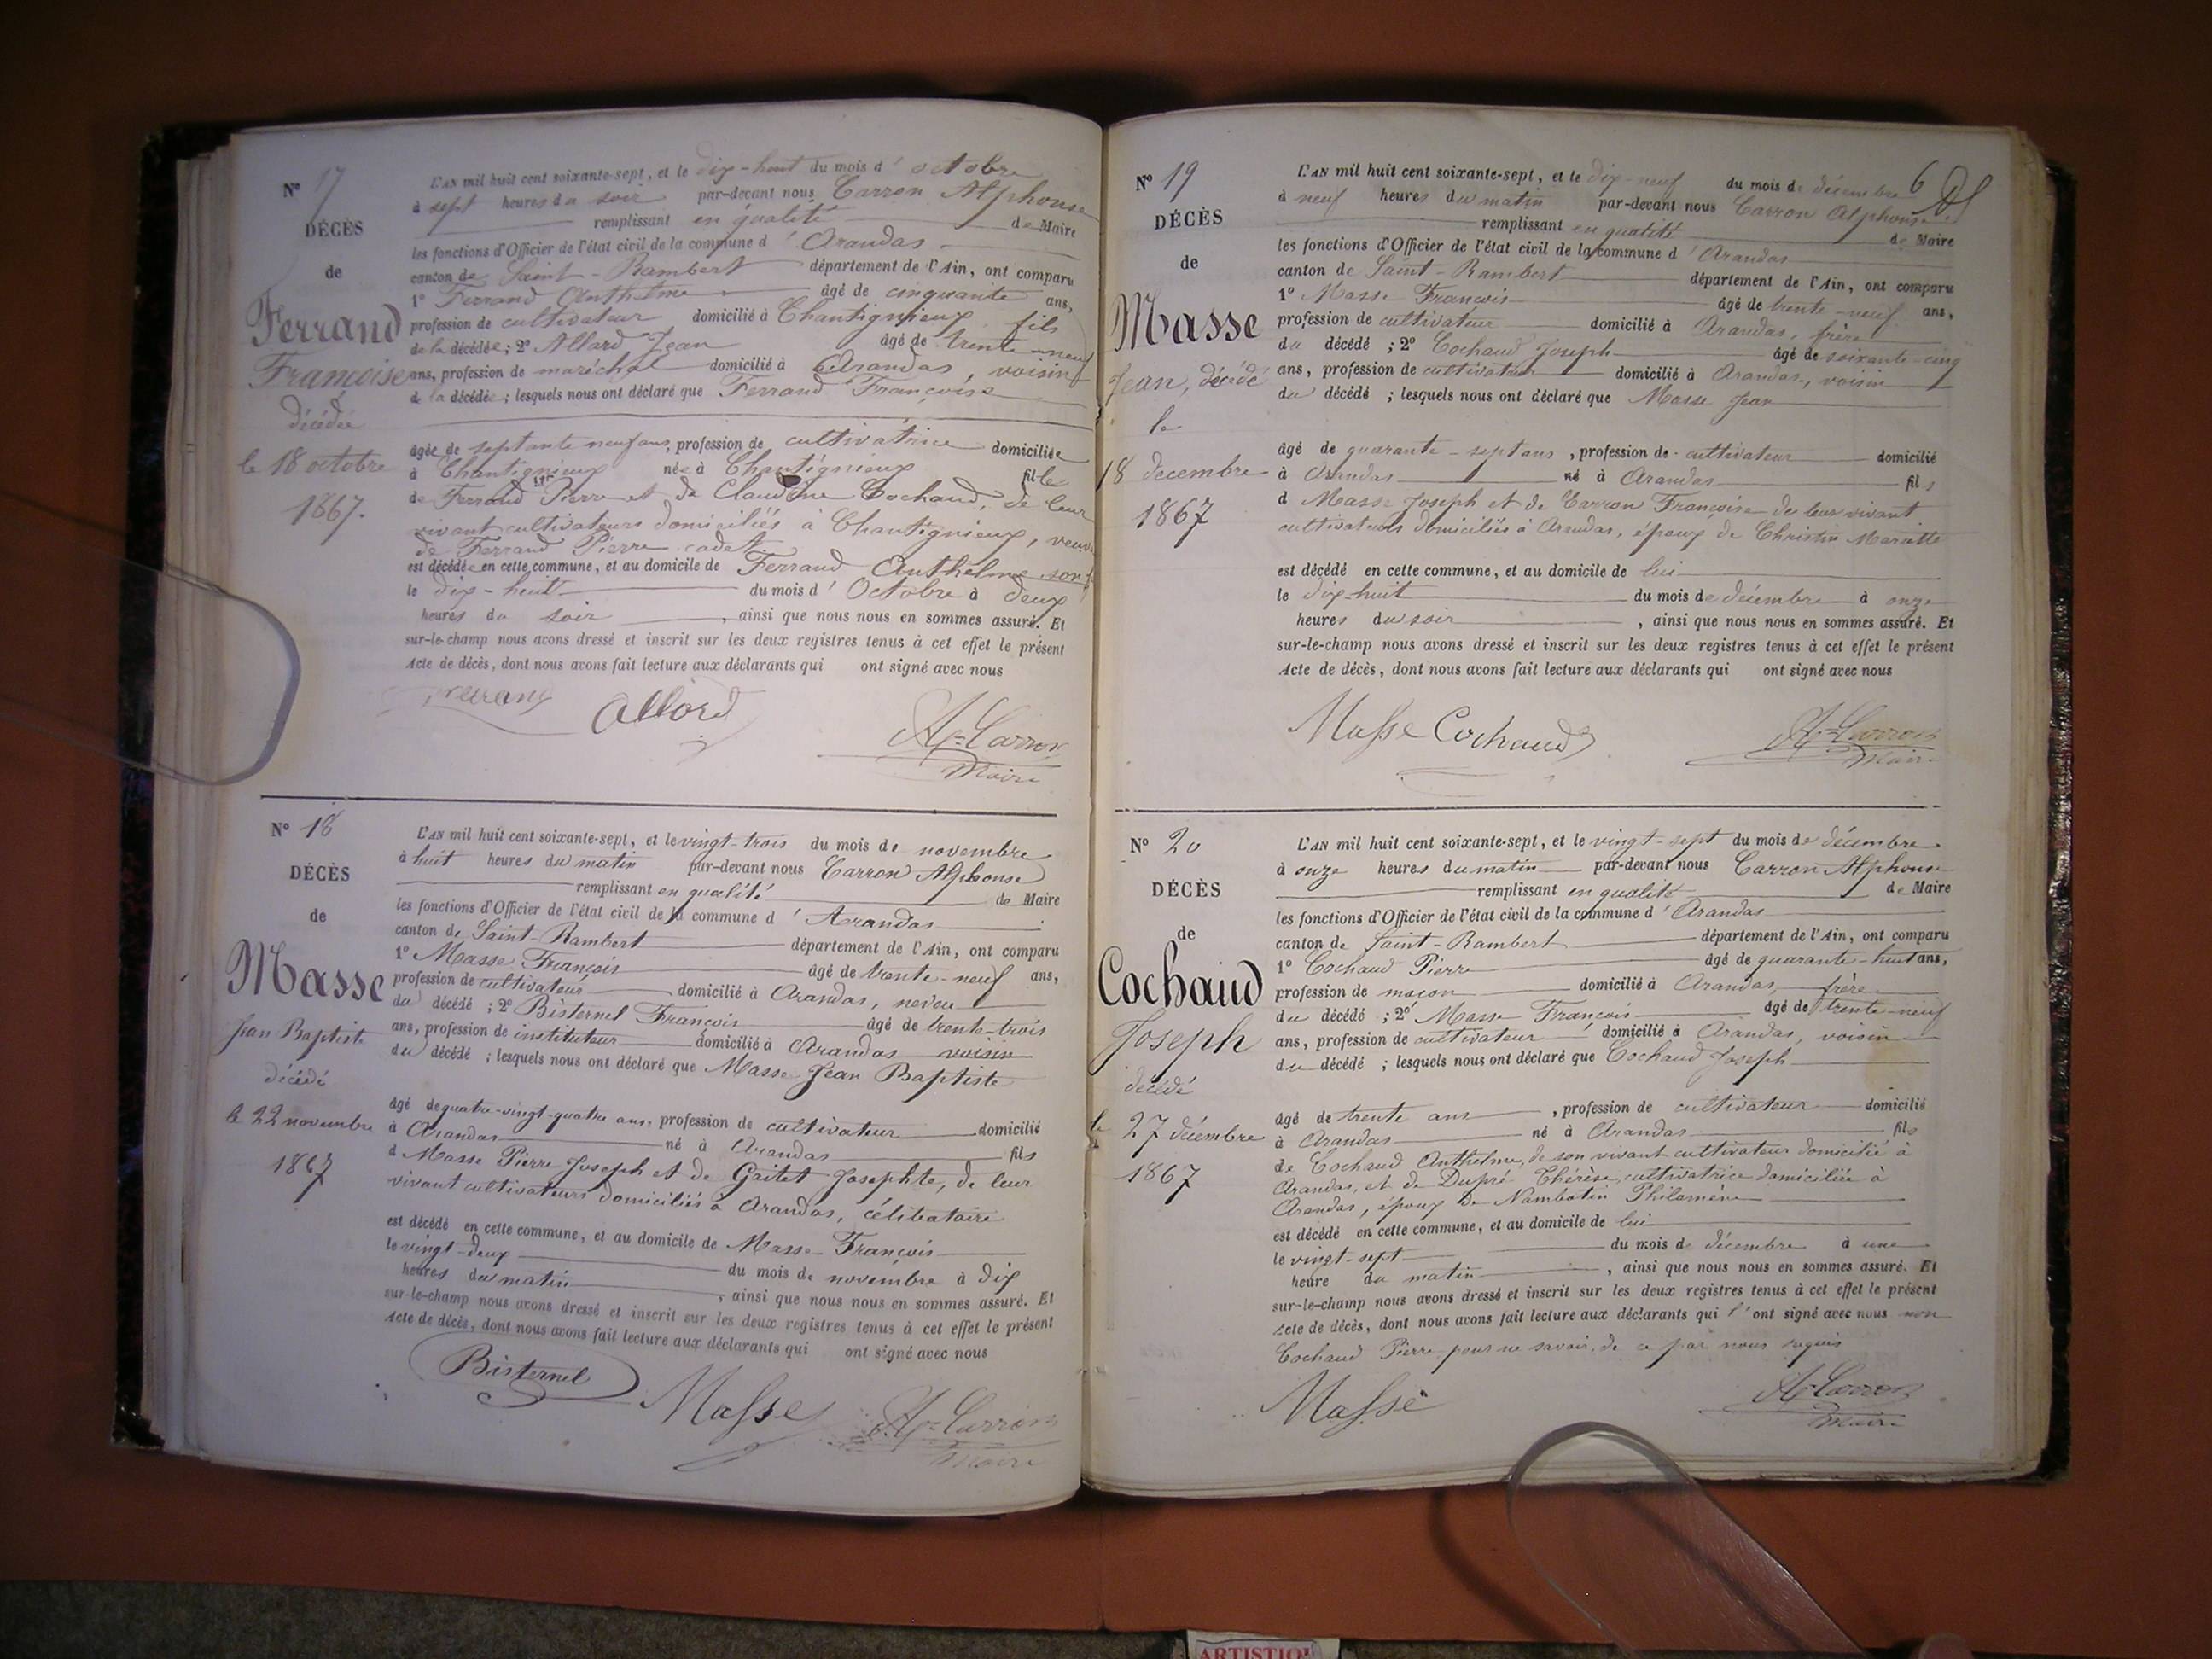 N° 17
DÉCÈS
de
Ferrand
Françoise
décédée
le 18 octobre
1867.
L'AN mil huit cent soixante-sept, et le dix-huit du mois d'octobre
à sept heures du soir par-devant nous Carron Alphonse
remplissant en qualité de Maire
les fonctions d'Officier de l'état civil de la commune d'Arandas
canton de Saint-Rambert département de l'Ain, ont comparu
1° Ferrand Anthelme âgé de cinquante ans,
profession de cultivateur domicilié à Chantignieux fils
de la décédée; 2° Allard Jean âgé de trente-neuf
ans, profession de maréchal domicilié à Arandas, voisin
de la décédée; lesquels nous ont déclaré que Ferrand Françoise
âgée de septante neuf ans, profession de cultivatrice domiciliée
à Chantignieux née à Chantignieux fille
de Ferrand Pierre et de Claudine Cochaud, de leur
vivant cultivateurs domiciliés à Chantignieux, veuve
de Ferrand Pierre cadet
est décédée en cette commune, et au domicile de Ferrand Anthelme son
le dix-huit du mois d'Octobre à deux
heures du soir, ainsi que nous nous en sommes assuré. Et
sur-le-champ nous avons dressé et inscrit sur les deux registres tenus à cet effet le présent
Acte de décès, dont nous avons fait lecture aux déclarants qui ont signé avec nous
Allard
A. Carron
Maire
N° 18
DÉCÈS
de
Masse
Jean Baptiste
décédé
le 22 novembre
1867
L'AN mil huit cent soixante-sept, et le vingt-trois du mois de novembre
à huit heures du matin par-devant nous Carron Alphonse
remplissant en qualité de Maire
les fonctions d'Officier de l'état civil de la commune d'Arandas
canton de Saint-Rambert département de l'Ain, ont comparu
1° Masse François âgé de trente-neuf ans,
profession de cultivateur domicilié à Arandas, neveu
du décédé; 2° Bisternel François âgé de trente-trois
ans, profession de instituteur domicilié à Arandas voisin
du décédé; lesquels nous ont déclaré que Masse Jean Baptiste
âgé de quatre-vingt-quatre ans, profession de cultivateur domicilié
à Arandas né à Arandas fils
d Masse Pierre Joseph et de Gritet Josephte, de leur
vivant cultivateurs domiciliés à Arandas, célibataire
est décédé en cette commune, et au domicile de Masse François
le vingt-deux du mois de novembre à dix
heures du matin, ainsi que nous nous en sommes assuré. Et
sur-le-champ nous avons dressé et inscrit sur les deux registres tenus à cet effet le présent
Acte de décès, dont nous avons fait lecture aux déclarants qui ont signé avec nous
Bisternel
Masse
A. Carron
Maire
6
N° 19
DÉCÈS
de
Masse
Jean, décédé
le
18 decembre
1867
L'AN mil huit cent soixante-sept, et le dix-neuf du mois de décembre
à neuf heures du matin par-devant nous Carron Alphonse
remplissant en qualité de Maire
les fonctions d'Officier de l'état civil de la commune d'Arandas
canton de Saint-Rambert département de l'Ain, ont comparu
1° Masse François âgé de trente-neuf ans,
profession de cultivateur domicilié à Arandas, frère
du décédé; 2° Cochaud Joseph âgé de soixante-cinq
ans, profession de cultivateur domicilié à Arandas, voisin
du décédé; lesquels nous ont déclaré que Masse Jean
âgé de quarante-sept ans, profession de cultivateur domicilié
à Arandas né à Arandas fils
d Masse Joseph et de Carron Françoise de leur vivant
cultivateurs domiciliés à Arandas, époux de Christin Mariette
est décédé en cette commune, et au domicile de lui
le dix-huit du mois de décembre à onze
heures du soir, ainsi que nous nous en sommes assuré. Et
sur-le-champ nous avons dressé et inscrit sur les deux registres tenus à cet effet le présent
Acte de décès, dont nous avons fait lecture aux déclarants qui ont signé avec nous
Masse Cochaud
A. Carron
Maire
N° 20
DÉCÈS
de
Cochaud
Joseph
décédé
le 27 décembre
1867
L'AN mil huit cent soixante-sept, et le vingt-sept du mois de décembre
à onze heures du matin par-devant nous Carron Alphonse
remplissant en qualité de Maire
les fonctions d'Officier de l'état civil de la commune d'Arandas
canton de Saint-Rambert département de l'Ain, ont comparu
1° Cochaud Pierre âgé de quarante-huit ans,
profession de maçon domicilié à Arandas, frère
du décédé; 2° Masse François âgé de trente-neuf
ans, profession de cultivateur domicilié à Arandas, voisin
du décédé; lesquels nous ont déclaré que Cochaud Joseph
âgé de trente ans, profession de cultivateur domicilié
à Arandas né à Arandas fils
de Cochaud Anthelme, de son vivant cultivateur domicilié à
Arandas, et de Dupré Thérèse, cultivatrice domiciliée à
Arandas, époux de Nambotin Philomène
est décédé en cette commune, et au domicile de lui
le vingt-sept du mois de décembre à une
heure du matin, ainsi que nous nous en sommes assuré. Et
sur-le-champ nous avons dressé et inscrit sur les deux registres tenus à cet effet le présent
Acte de décès, dont nous avons fait lecture aux déclarants qui l'ont signé avec nous non
Cochaud Pierre pour ne savoir, de ce par nous requis
Masse
A. Carron
Maire